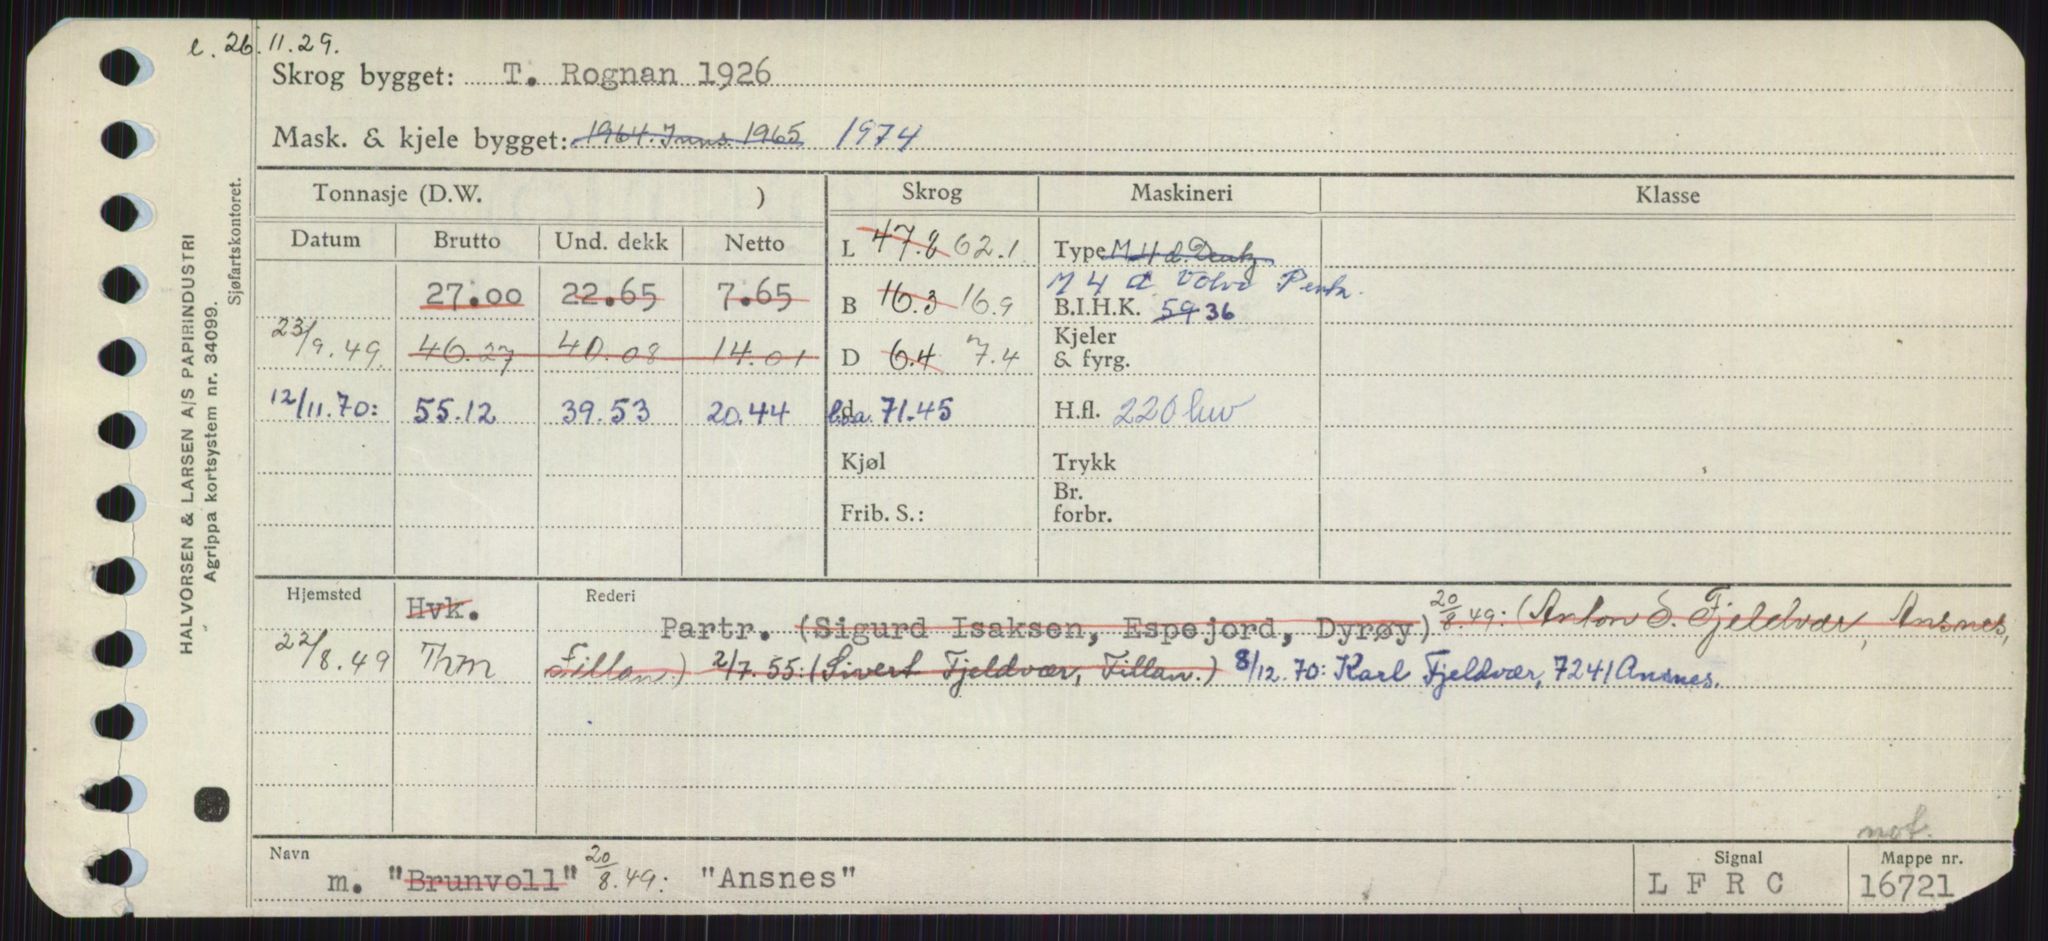 e. 26.11.29.
Skrog bygget: T. Rognan 1926
Mask. & kjele bygget: 1964. Inns. 1965 1974
Tonnasje (D.W. ) Skrog Maskineri Klasse
Datum Brutto Und. dekk Netto L 47.8 62.1 Type M 4 d. Deutz
M 4 d Volvo Penta.
27.00 22.65 7.65 B 16.3 16.9 B.I.H.K. 59 36
23/9.49. 46.27 40.08 14.01 D 6.4 7.4 Kjeler
& fyrg.
12/11.70: 55.12 39.53 20.44 d l.o.a. 71.45 H.fl. 220 hw
Kjøl Trykk
Br.
Frib. S.: forbr.
Hjemsted Hvk. Rederi
Partr. (Sigurd Isaksen, Espejord, Dyrøy) 20/8.49: (Anton S. Fjeldvær, Ansnes,
22/8.49 Thm Fillan.) 2/7.55: (Sivert Fjeldvær, Fillan.) 8/12.70: Karl Fjeldvær, 7241 Ansnes.
not.
Navn Signal Mappe nr.
m. "Brunvoll" 20/8.49: "Ansnes" L F R C 16721
HALVORSEN & LARSEN A/S PAPIRINDUSTRI
Agrippa kortsystem nr. 34099.
Sjøfartskontoret.